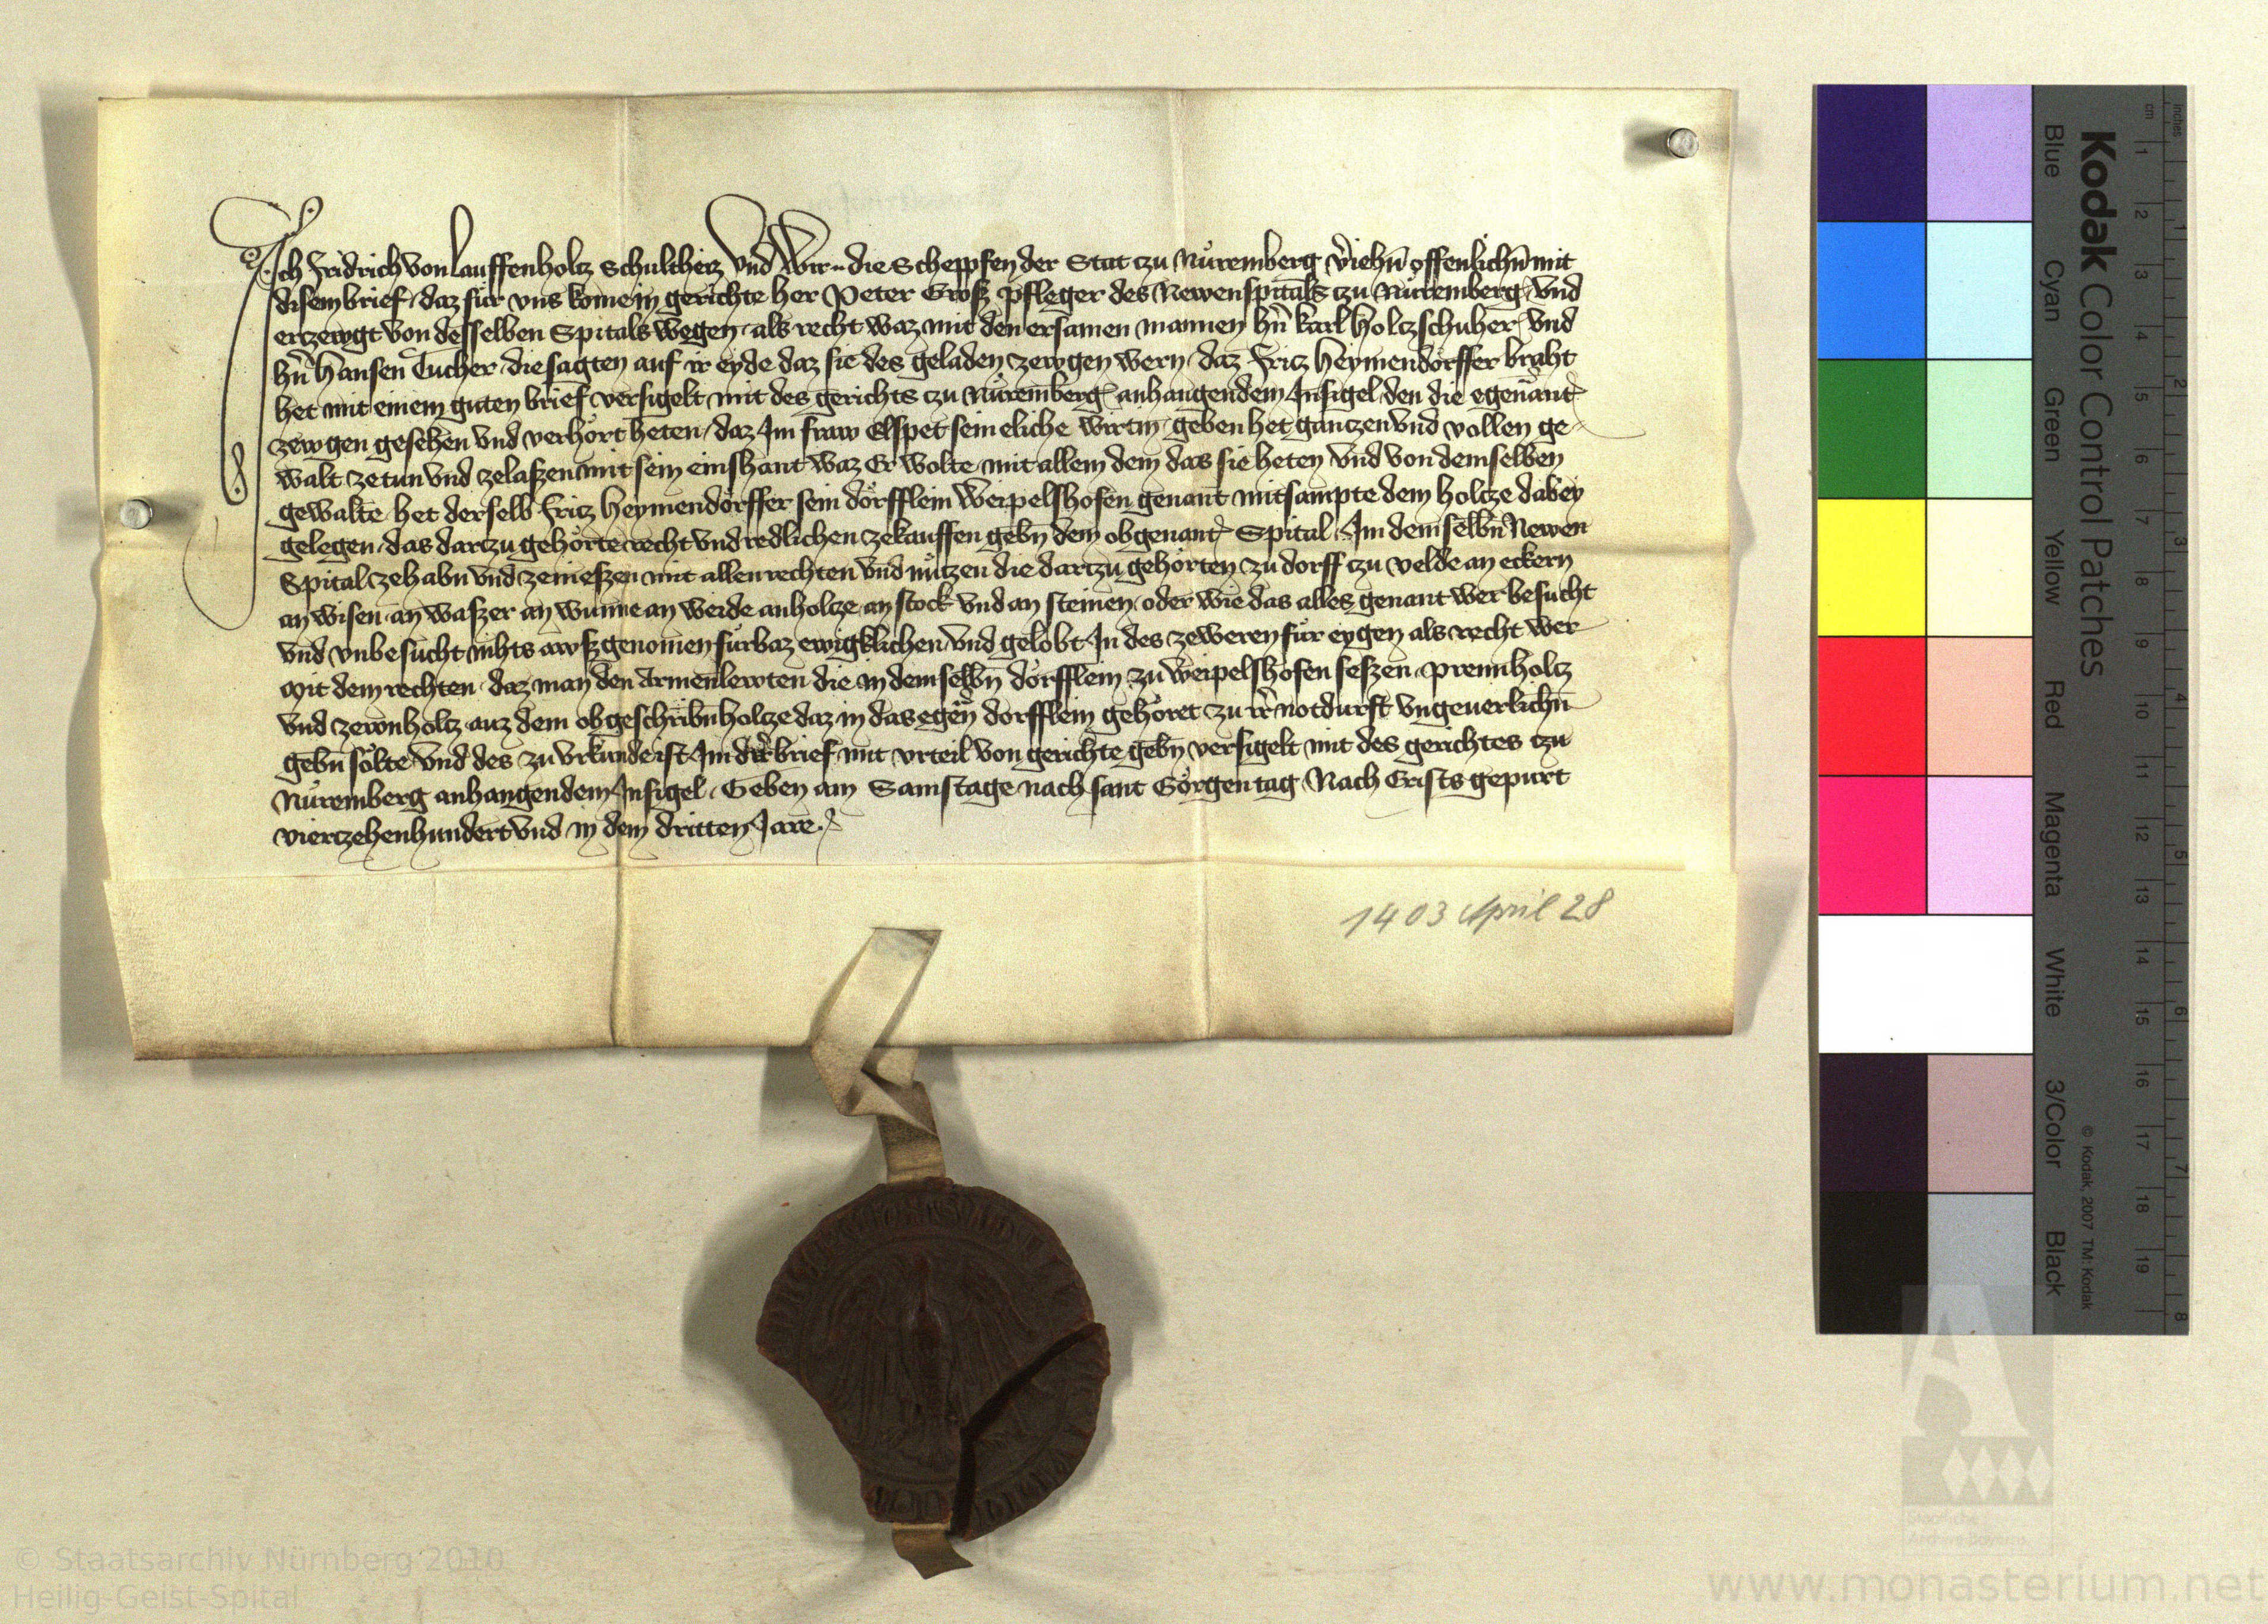 Ich Fridrich von Lauffenholtz Schultheiz Vnd Wir die Scheppfen der Stat tzu Nuͤremberg v̉iehn̄ offenlichn̄ mit
disem brief daz fuͤr vns kome in gerichte her Peter Grosz pfleger des Newenspitals tzu Nuͤremberg vnd
ertzewgt von desselben Spitals wegen als recht waz mit den ersamen mannen hn̉ karl holtzschuher vnd
hn̉ hansen Tucher die sagten auf ir eyde daz sie des geladen zewgen wern daz Fritz heymendoͤrffer braht
het mit einem guten brief versigelt mit des gerichts tzu Nuͤremberg anhangendem Insigel den die egenant
zewgen gesehen vnd verhoͤrt heten daz Im fraw Elspet sein eliche wirtin geben het gantzen vnd vollen ge
walt zetun vnd zelaszen mit sein einshant waz Er wolte mit allem dem das sie heten vnd von demselben
gewalte het derselb Fritz heymendoͤrffer sein doͤrfflein Weipelshofen genant mitsampte dem holtze dabey
gelegen das dartzu gehoͤrte recht vnd redlichen zekauffen gebn̄ dem obgenant Spital Im demselbn̄ Newen
Spital zehabn̄ vnd zenieszen mit allen rechten vnd nuͤtzen die dartzu gehoͤrten zu dorff tzu velde an eckern
an wisen an waszer an wunne an weide an holtze an stock vnd an steinen oder wie das alles genant wer besucht
vnd vnbesucht nihts awszgenomen fuͤrbaz ewigklichen vnd gelobt In des zeweren fuͤr eygen als recht wer
Mit dem rechten daz man den Armenlewten die in demselbn̄ doͤrfflein zu Weipelshofen seszen prennholtz
vnd zewnholtz auz dem obgeschribn̄ holtze daz in das egen̄ doͤrfflein gehoͤret zu ir̉ notdurft vngeuerlichn̄
gebn̄ soͤlte vnd des zu vrkunde ist Im dir̉ brief mit vrteil von gerichte gebn̄ versigelt mit des gerichtes tzu
Nuͤremberg anhangendem Insigel Geben am Samstage nach sant Goͤrgen tag Nach Crists gepurt
viertzehenhundert vnd in dem dritten Jare
1403 April 28
Kodak Color Control Patches
Blue Cyan Green Yellow Red Magenta White 3/Color Black
© Kodak, 2007 TM: Kodak
inches 1 2 3 4 5 6 7 8
cm 1 2 3 4 5 6 7 8 9 10 11 12 13 14 15 16 17 18 19
© Staatsarchiv Nürnberg 2010
Heilig-Geist-Spital
Staatliche
Archive Bayerns
www.monasterium.net